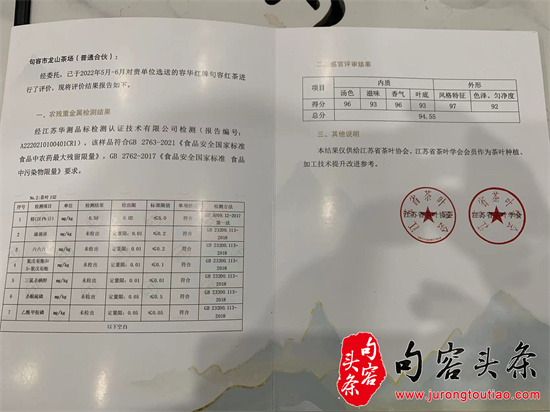 句容市龙山茶场（普通合伙）：
经委托，已于2022年5月-6月对贵单位选送的容华红牌句容红茶进
行了评价，现将评价结果报告如下。
一、农残重金属检测结果
经江苏华测品标检测认证技术有限公司检测（报告编号：
A2220210100401CR1），该样品符合GB 2763-2021《食品安全国家标准
食品中农药最大残留限量》，GB 2762-2017《食品安全国家标准 食品
中污染物限量》要求。
序号 检测项目 单位 检测结果 检出限 标准限值 单项 检测方法
1 铅(以Pb计) mg/kg 0.50 0.02 ≤5.0 符合
2 mg/kg 未检出 定量限：0.01 ≤0.2 符合 GB 23200.113-2018
3 六六六 mg/kg 未检出 定量限：0.01 ≤0.2 符合 GB 23200.113-2018
4 mg/kg 未检出 定量限：0.01 符合 GB 23200.113-2018
5 三氯杀螨醇 mg/kg 未检出 定量限：0.01 符合 GB 23200.113-2018
6 杀螟硫磷 mg/kg 未检出 定量限：0.05 ≤0.5 符合 GB 23200.113-2018
7 乙酰甲胺磷 mg/kg 未检出 定量限：0.01 符合 GB 23200.113-2018
以下空白
二、感官评审结果
项目 内质 外形
汤色 滋味 香气 叶底 风格特征 色泽、匀净度
得分 96 93 96 93 97 92
总分 94.55
三、其他说明
本结果仅供给江苏省茶叶协会、江苏省茶叶学会会员作为茶叶种植、
加工技术提升改进参考。
江苏省茶叶协会
江苏省茶叶学会
句容
头条
句容头条
www.jurongtoutiao.com